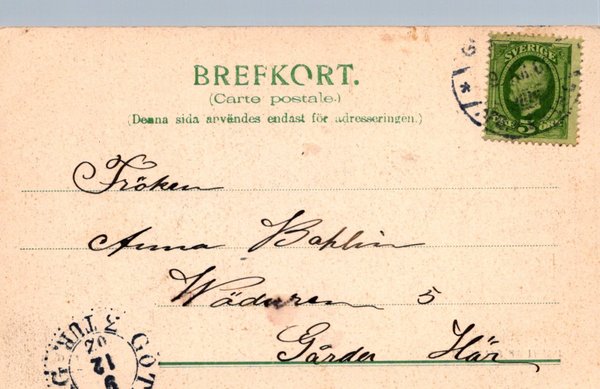 BREFKORT.
(Carte postale.)
(Denna sida användes endast för adresseringen.)
SVERIGE
5
Fröken
Anna Bohlin
Wäduren 5
Gårda Här